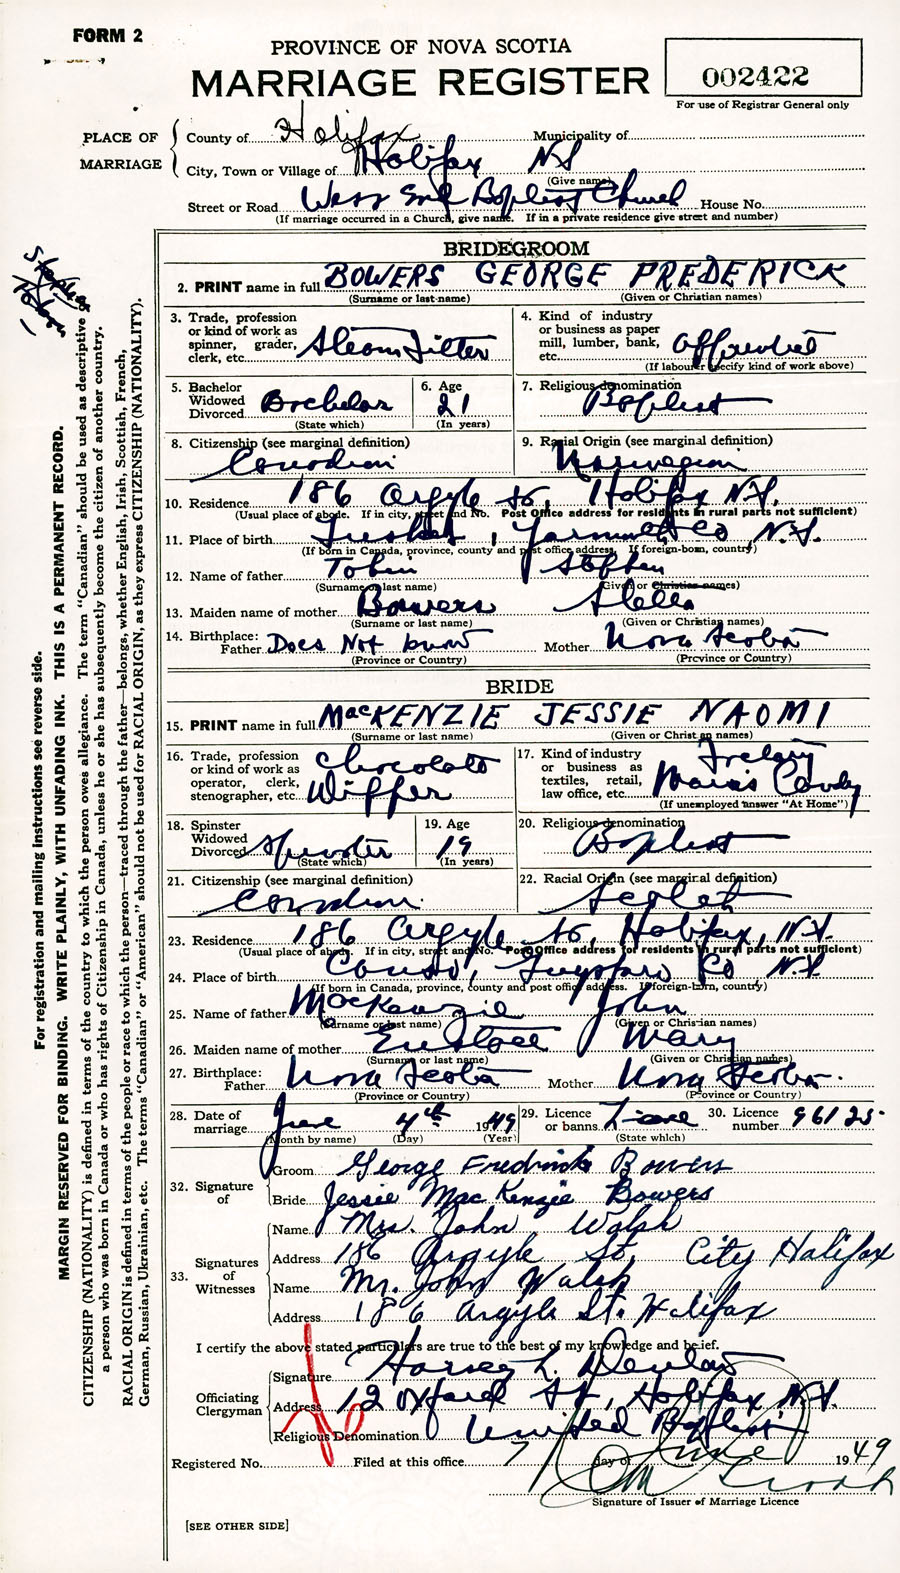 FORM 2
PROVINCE OF NOVA SCOTIA
MARRIAGE REGISTER
002422
For use of Registrar General only
PLACE OF MARRIAGE
County of Halifax Municipality of
City, Town or Village of Halifax NS
(Give name)
Street or Road West End Baptist Church House No.
(If marriage occurred in a Church, give name. If in a private residence give street and number)
BRIDEGROOM
2. PRINT name in full BOWERS GEORGE FREDERICK
(Surname or last name) (Given or Christian names)
3. Trade, profession or kind of work as spinner, grader, clerk, etc. Steam Fitter
4. Kind of industry or business as paper mill, lumber, bank, etc.
(If labourer specify kind of work above)
5. Bachelor Widowed Divorced Bachelor
(State which)
6. Age 21
(In years)
7. Religious denomination Baptist
8. Citizenship (see marginal definition) Canadian
9. Racial Origin (see marginal definition) Norwegian
10. Residence 186 Argyle St, Halifax N.S.
(Usual place of abode. If in city, street and No. Post Office address for residents in rural parts not sufficient)
11. Place of birth Tusket, Yarmouth Co N.S.
(If born in Canada, province, county and post office address. If foreign-born, country)
12. Name of father Tobin Stephen
(Surname or last name) (Given or Christian names)
13. Maiden name of mother Bowers Stella
(Surname or last name) (Given or Christian names)
14. Birthplace: Father Does Not know Mother Nova Scotia
(Province or Country) (Province or Country)
BRIDE
15. PRINT name in full MacKENZIE JESSIE NAOMI
(Surname or last name) (Given or Christian names)
16. Trade, profession or kind of work as operator, clerk, stenographer, etc. Chocolate Dipper
17. Kind of industry or business as textiles, retail, law office, etc. Candy
(If unemployed answer "At Home")
18. Spinster Widowed Divorced Spinster
(State which)
19. Age 19
(In years)
20. Religious denomination Baptist
21. Citizenship (see marginal definition) Canadian
22. Racial Origin (see marginal definition) Scotch
23. Residence 186 Argyle St, Halifax, N.S.
(Usual place of abode. If in city, street and No. Post Office address for residents in rural parts not sufficient)
24. Place of birth Canso, Guysboro Co N.S.
(If born in Canada, province, county and post office address. If foreign-born, country)
25. Name of father MacKenzie John
(Surname or last name) (Given or Christian names)
26. Maiden name of mother Eustace Mary
(Surname or last name) (Given or Christian names)
27. Birthplace: Father Nova Scotia Mother Nova Scotia
(Province or Country) (Province or Country)
28. Date of marriage June 4th 1949
(Month by name) (Day) (Year)
29. Licence or banns License
(State which)
30. Licence number 96125
32. Signature of
Groom George Fredrick Bowers
Bride Jessie MacKenzie Bowers
33. Signatures of Witnesses
Name Mrs. John Walsh
Address 186 Argyle St. City Halifax
Name Mr. John Walsh
Address 186 Argyle St. Halifax
I certify the above stated particulars are true to the best of my knowledge and belief.
Officiating Clergyman
Signature Harvey L. Denton
Address 12 Oxford St, Halifax, N.S.
Religious Denomination United Baptist
Registered No. Filed at this office 7 day of June 1949
Signature of Issuer of Marriage Licence
[SEE OTHER SIDE]
For registration and mailing instructions see reverse side.
MARGIN RESERVED FOR BINDING. WRITE PLAINLY, WITH UNFADING INK. THIS IS A PERMANENT RECORD.
CITIZENSHIP (NATIONALITY) is defined in terms of the country to which the person owes allegiance. The term "Canadian" should be used as descriptive of
a person who was born in Canada or who has rights of Citizenship in Canada, unless he or she has subsequently become the citizen of another country.
RACIAL ORIGIN is defined in terms of the people or race to which the person—traced through the father—belongs, whether English, Irish, Scottish, French,
German, Russian, Ukrainian, etc. The terms "Canadian" or "American" should not be used for RACIAL ORIGIN, as they express CITIZENSHIP (NATIONALITY).